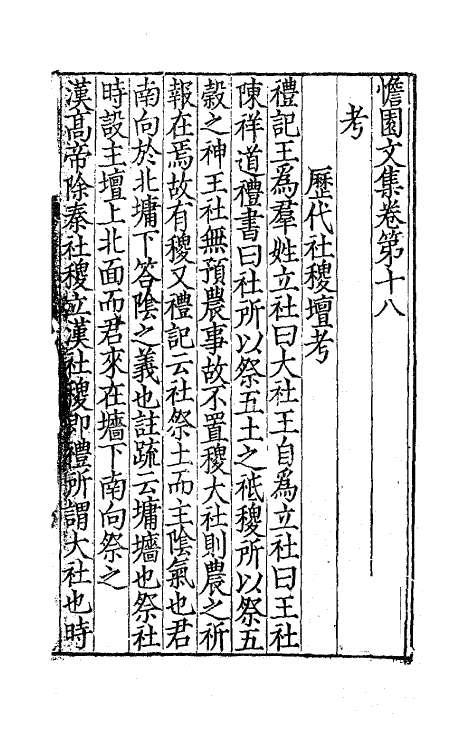 憺園文集卷第十八
考
歷代社稷壇考
禮記王爲羣姓立社曰大社王自爲立社曰王社
陳祥道禮書曰社所以祭五土之祗稷所以祭五
穀之神王社無預農事故不置稷大社則農之祈
報在焉故有稷又禮記云社祭土而主陰氣也君
南向於北墉下答陰之義也註疏云墉墻也祭社
時設主壇上北面而君來在墻下南向祭之
漢高帝除秦社稷立漢社稷卽禮所謂大社也時